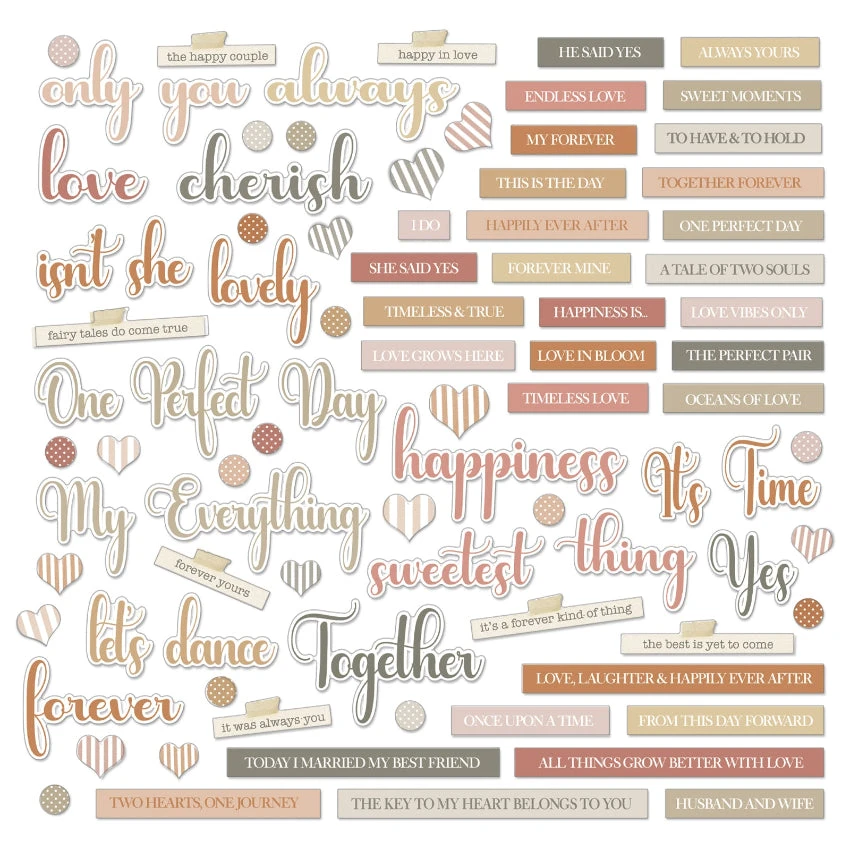 the happy couple
happy in love
HE SAID YES
ALWAYS YOURS
only you always
ENDLESS LOVE
SWEET MOMENTS
MY FOREVER
TO HAVE & TO HOLD
love cherish
THIS IS THE DAY
TOGETHER FOREVER
I DO
HAPPILY EVER AFTER
ONE PERFECT DAY
isn't she lovely
SHE SAID YES
FOREVER MINE
A TALE OF TWO SOULS
TIMELESS & TRUE
HAPPINESS IS...
LOVE VIBES ONLY
fairy tales do come true
LOVE GROWS HERE
LOVE IN BLOOM
THE PERFECT PAIR
One Perfect Day
TIMELESS LOVE
OCEANS OF LOVE
happiness
It's Time
My Everything
sweetest thing
Yes
forever yours
it's a forever kind of thing
let's dance
Together
the best is yet to come
LOVE, LAUGHTER & HAPPILY EVER AFTER
forever
it was always you
ONCE UPON A TIME
FROM THIS DAY FORWARD
TODAY I MARRIED MY BEST FRIEND
ALL THINGS GROW BETTER WITH LOVE
TWO HEARTS, ONE JOURNEY
THE KEY TO MY HEART BELONGS TO YOU
HUSBAND AND WIFE